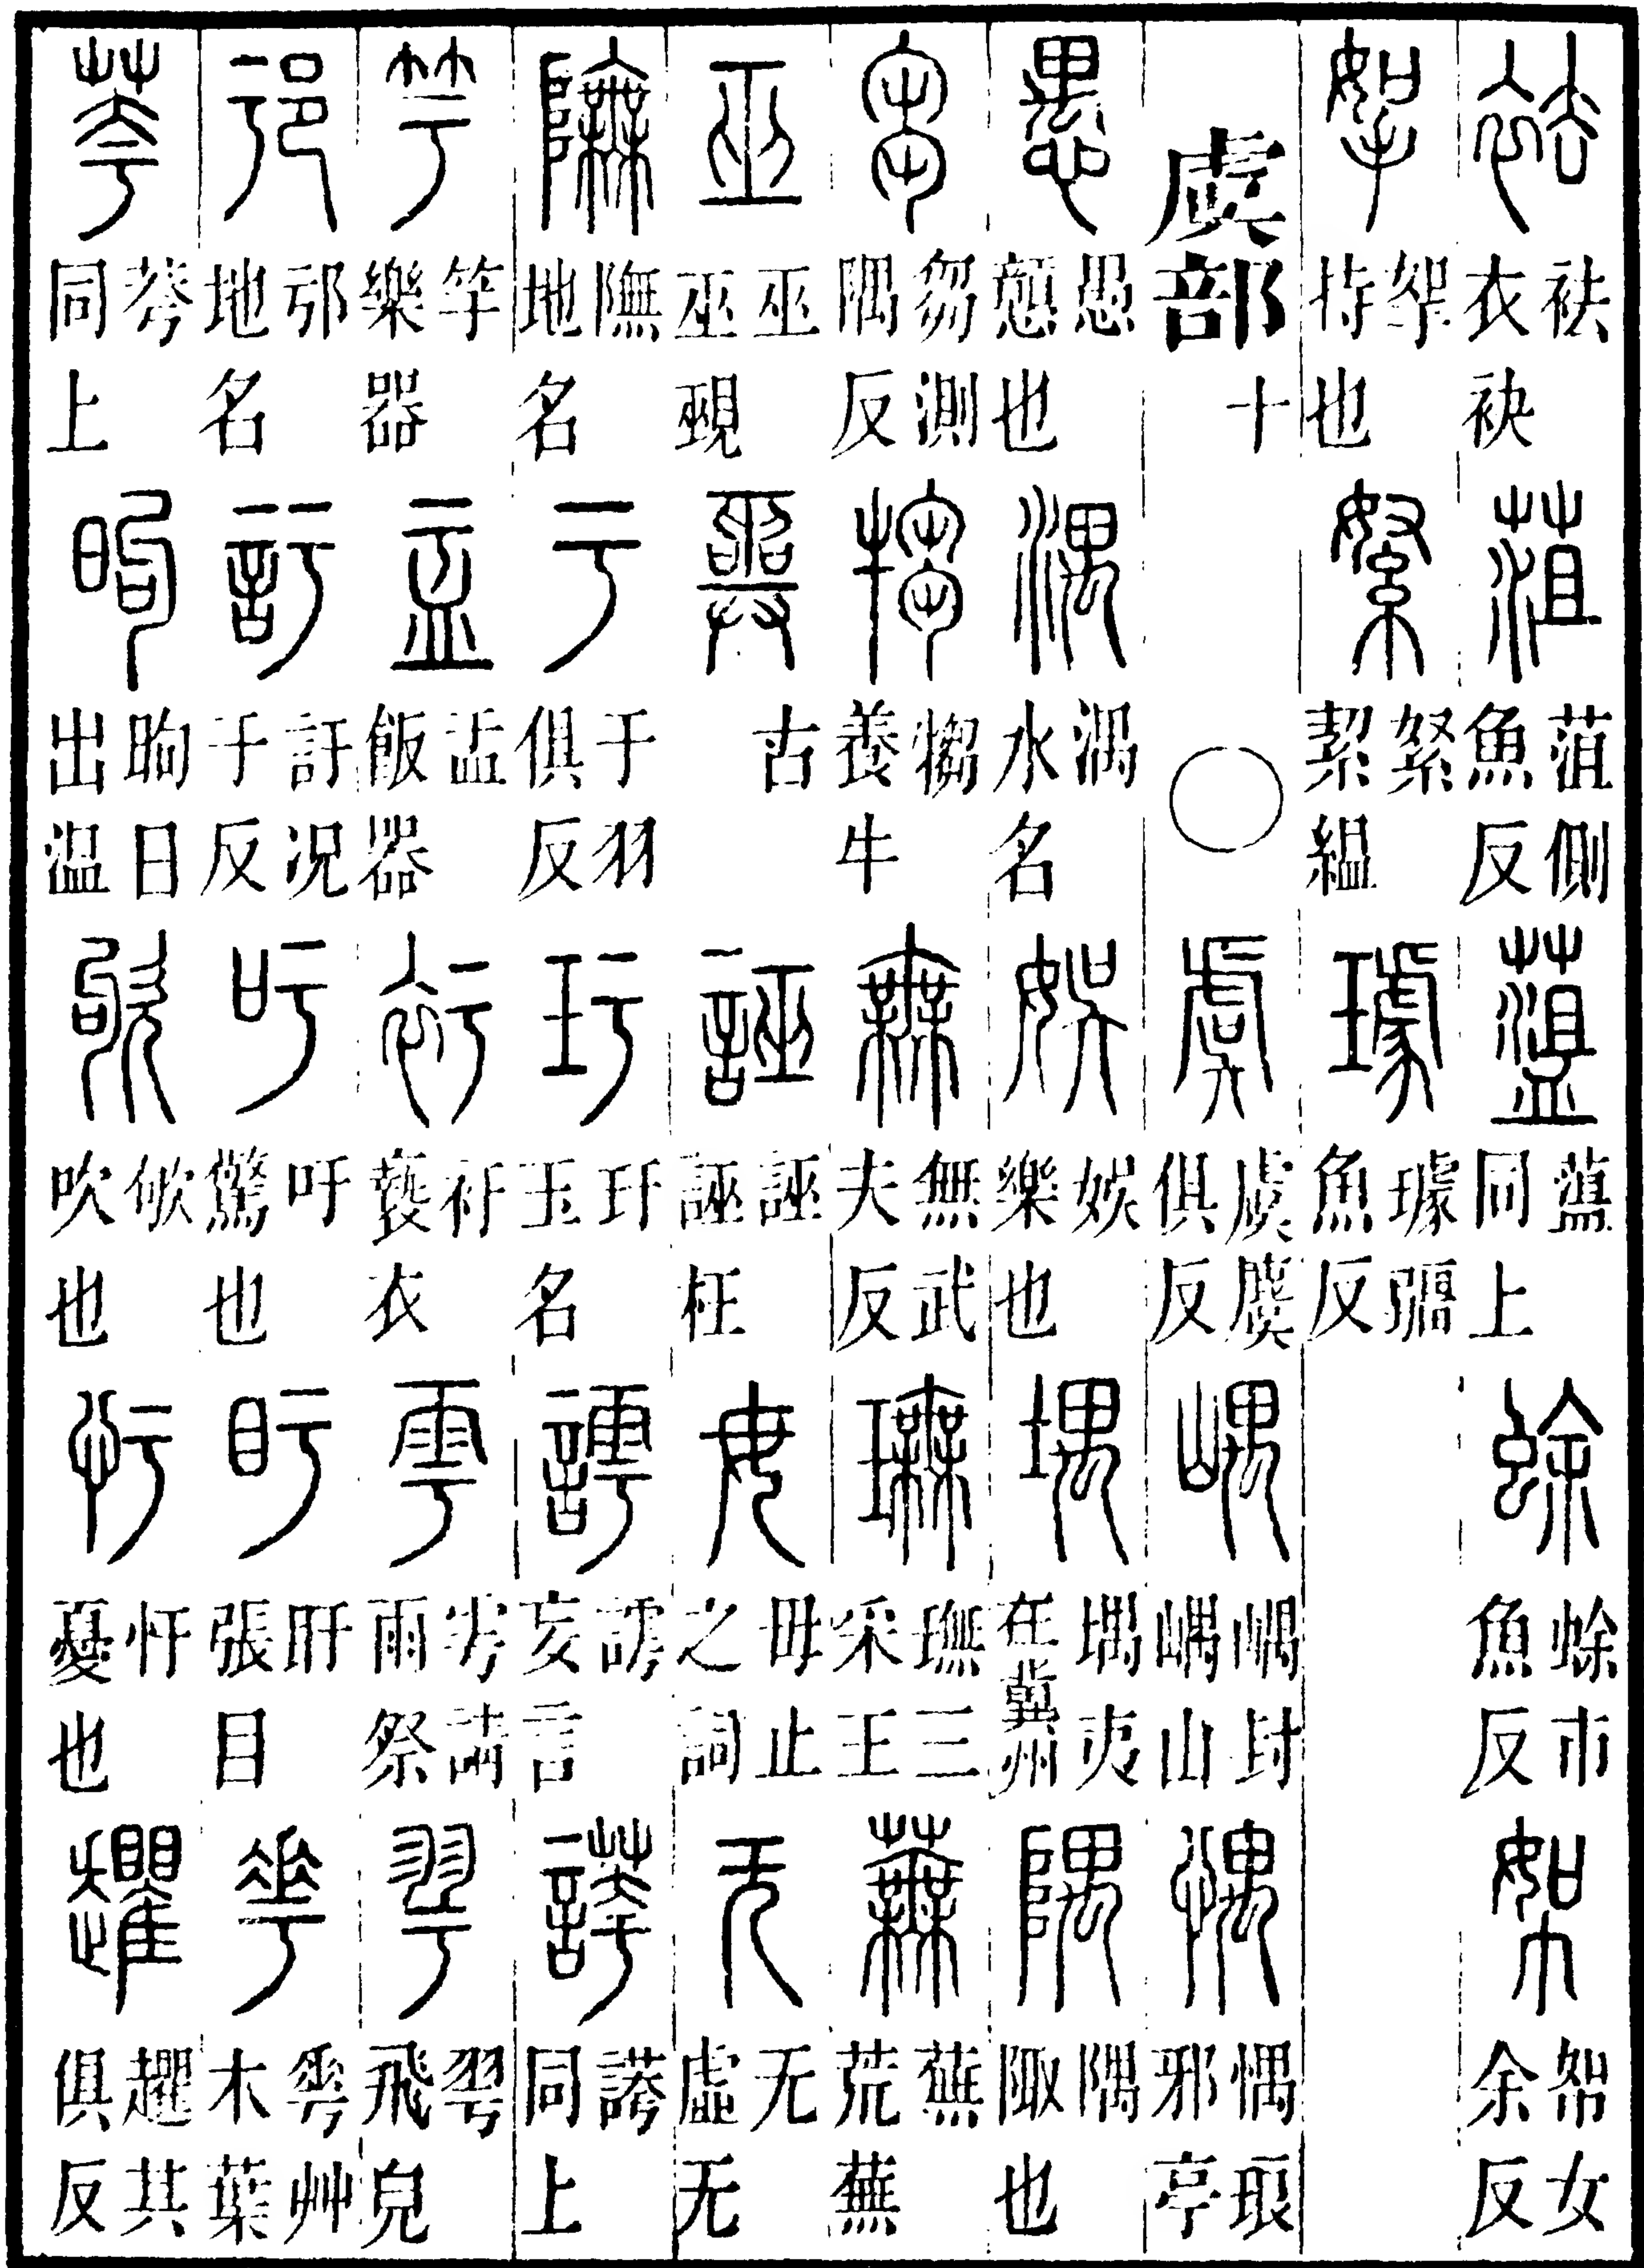 袪 袪衣袂 菹 菹側魚反 同上 蜍 蜍市魚反 帤 帤女余反
挐 挐持也 䋈 䋈絜縕 璩 璩彊魚反
虞部 十 ○ 虞 虞麌俱反 嵎 嵎封嵎山 㥥 㥥琅邪亭
愚 愚戇也 湡 湡水名 娛 娛樂也 堣 堣夷在冀州 隅 隅陬也
芻 芻測隅反 犓 犓養牛 無 無武夫反 璑 璑三采王 蕪 蕪荒蕪
巫 巫巫覡 古 誣 誣誣枉 毋 毋止之詞 无 无虛无
地名 于 于羽俱反 玗 玗玉名 謣 謣妄言 同上
竽 竽樂器 盂 盂飯器 衧 衧褻衣 雩 雩請雨祭 飛皃
邘 邘地名 訏 訏況于反 吁 吁驚也 盱 盱張目 𠌶 𠌶艸木葉
荂 荂同上 昫 昫日出溫 欨 欨吹也 𢖳 𢖳憂也 𧾱 𧾱其俱反